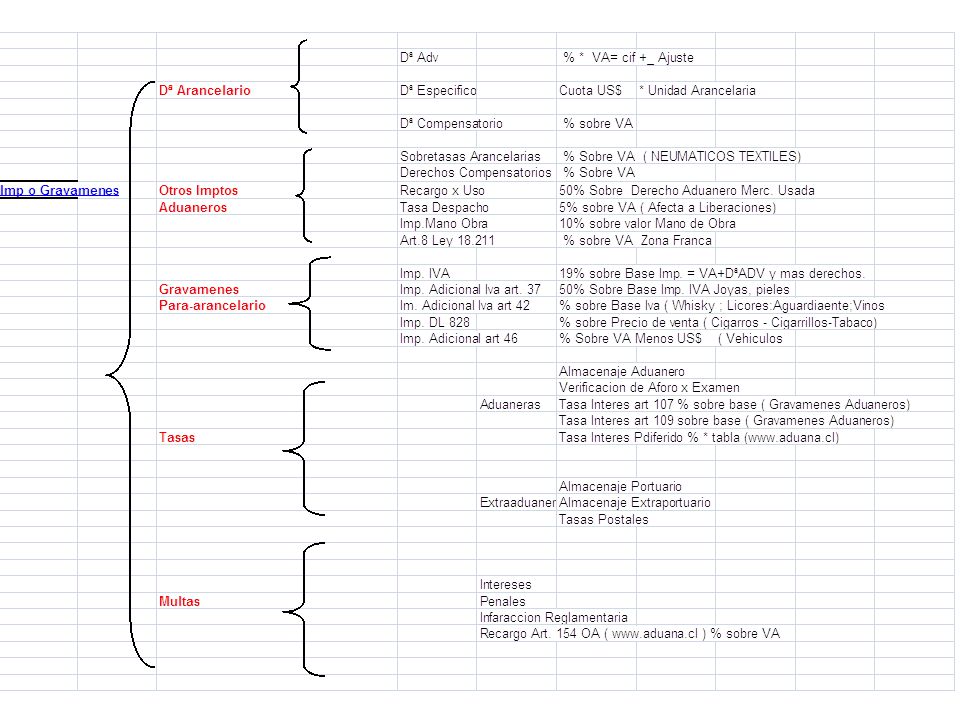 Dª Adv % * VA= cif +_ Ajuste
Dª Arancelario Dª Especifico Cuota US$ * Unidad Arancelaria
Dª Compensatorio % sobre VA
Sobretasas Arancelarias % Sobre VA ( NEUMATICOS TEXTILES)
Derechos Compensatorios % Sobre VA
Imp o Gravamenes Otros Imptos Recargo x Uso 50% Sobre Derecho Aduanero Merc. Usada
Aduaneros Tasa Despacho 5% sobre VA ( Afecta a Liberaciones)
Imp.Mano Obra 10% sobre valor Mano de Obra
Art.8 Ley 18.211 % sobre VA Zona Franca
Imp. IVA 19% sobre Base Imp. = VA+DªADV y mas derechos.
Gravamenes Imp. Adicional Iva art. 37 50% Sobre Base Imp. IVA Joyas, pieles
Para-arancelario Im. Adicional Iva art 42 % sobre Base Iva ( Whisky ; Licores:Aguardiaente;Vinos
Imp. DL 828 % sobre Precio de venta ( Cigarros - Cigarrillos-Tabaco)
Imp. Adicional art 46 % Sobre VA Menos US$ ( Vehiculos
Almacenaje Aduanero
Verificacion de Aforo x Examen
Aduaneras Tasa Interes art 107 % sobre base ( Gravamenes Aduaneros)
Tasa Interes art 109 sobre base ( Gravamenes Aduaneros)
Tasas Tasa Interes Pdiferido % * tabla (www.aduana.cl)
Almacenaje Portuario
Extraaduaner Almacenaje Extraportuario
Tasas Postales
Intereses
Multas Penales
Infaraccion Reglamentaria
Recargo Art. 154 OA ( www.aduana.cl ) % sobre VA